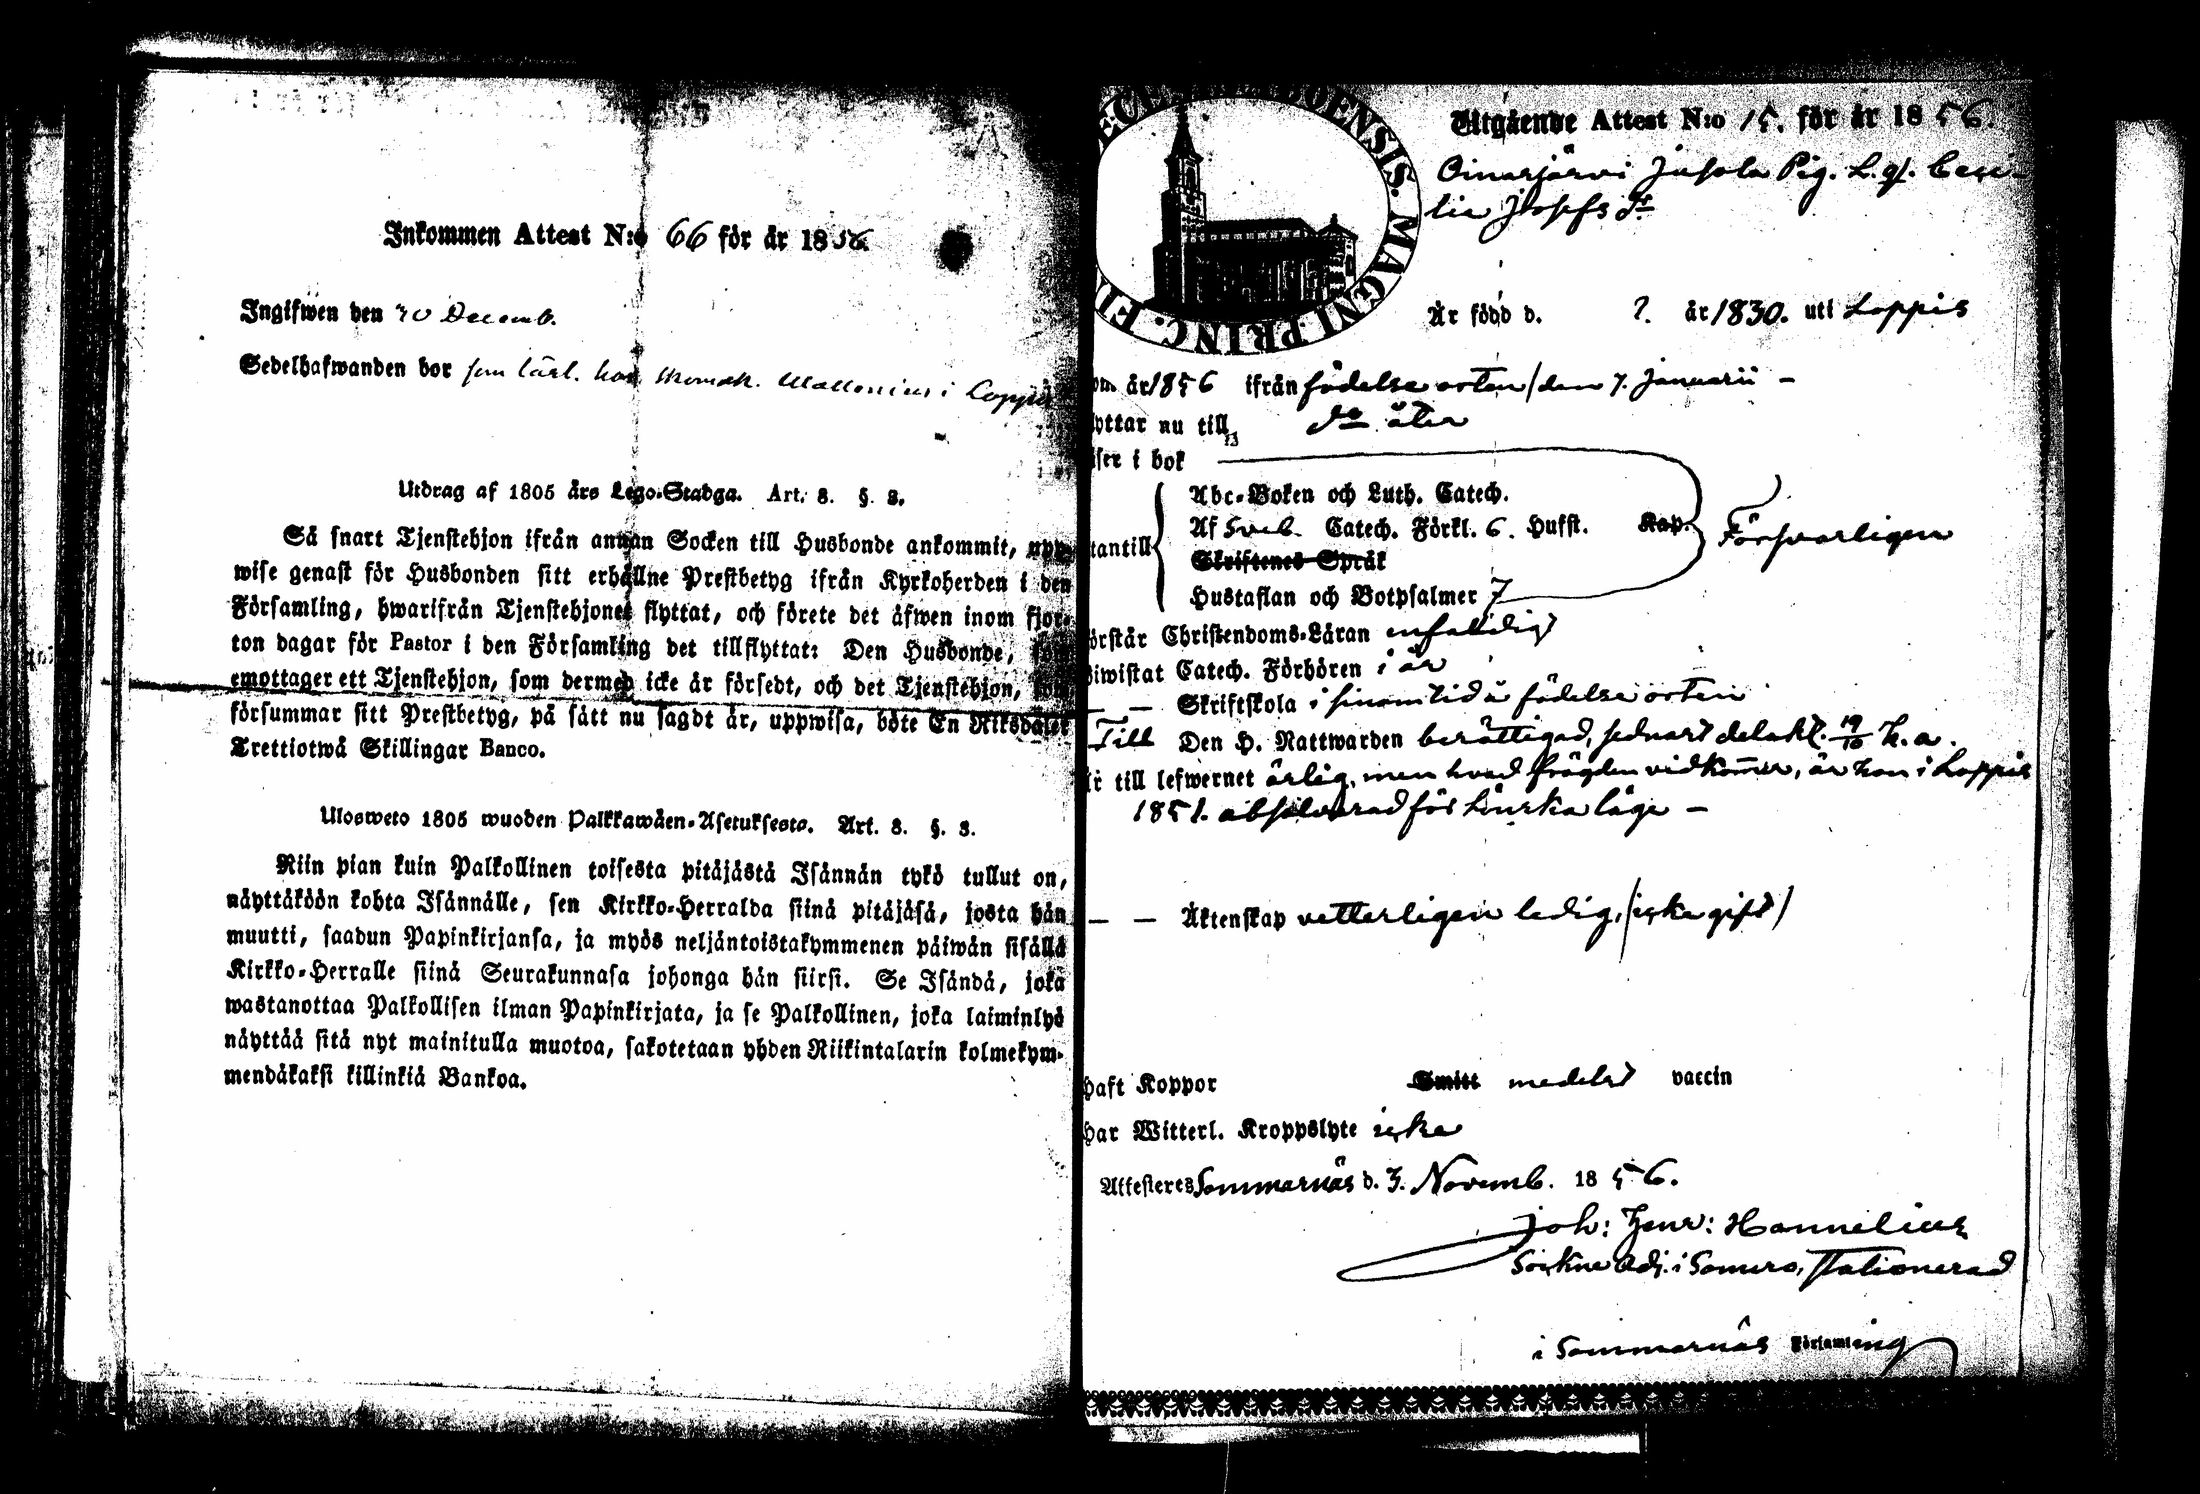 Inkommen Attest N:o 66 för år 1856.
Ingifwen den 30 Decemb.
Sedelhafwanden bor som hos i Loppis
Utdrag af 1805 års Lego-Stadga. Art. 8. §. 3.
Så snart Tjenstehjon ifrån annan Socken till Husbonde ankommit, upp-
wise genast för Husbonden sitt erhållne Prestbetyg ifrån Kyrkoherden i den
Församling, hwarifrån Tjenstehjonet flyttat, och förete det äfwen inom fjor-
ton dagar för Pastor i den Församling det tillflyttat: Den Husbonde, som
emottager ett Tjenstehjon, som dermed icke är försedt, och det Tjenstehjon, som
försummar sitt Prestbetyg, på sätt nu sagdt är, uppwisa, böte En Riksdaler
Trettiotwå Skillingar Banco.
Ulosweto 1805 wuoden Palkkawäen-Asetuksesta. Art. 8. §. 3.
Niin pian kuin Palkollinen toisesta pitäjästä Isännän tykö tullut on,
näyttäköön kohta Isännälle, sen Kirkko-Herralda siinä pitäjäsä, josta hän
muutti, saadun Papinkirjansa, ja myös neljäntoistakymmenen päiwän sisällä
Kirkko-Herralle siinä Seurakunnasa johonga hän siirsi. Se Isändä, joka
wastanottaa Palkollisen ilman Papinkirjata, ja se Palkollinen, joka laiminlyö
näyttää sitä nyt mainitulla muotoa, sakotetaan yhden Riikintalarin kolmekym-
mendäkaksi killinkiä Bankoa.
BOENSIS. MAGNI. PRINC. FI
Utgående Attest N:o 15. för år 1856.
Oinasjärvi Jusola Pig. L.qf. Ceci-
lia Josefs dr
Är född d. ?. år 1830. uti Loppis
om år 1856 ifrån födelse orten /den 7. Januarii –
yttar nu till do åter
iser i bok
Abc-Boken och Luth. Catech.
Af Sveb. Catech. Förkl. 6. Hufst. Kap.
tantill Försvarligen
Skriftenes Språk
Hustaflan och Botpsalmer 7
örstår Christendoms-Läran enfaldigt
iwistat Catech. Förhören i år
— — Skriftskola i sinom tid i födelse orten
Till Den H. Nattwarden berättigad, sednast delakt. 19/10 h.a.
r till lefwernet ärlig, men hvad frägden vidkommer, är hon i Loppis
1851. absolverad för lönska läge –
— — Äktenskap vetterligen ledig, /icke gift/
haft Koppor Smitt medelst vaccin
har Witterl. Kroppslyte icke
Attesteres Sommarnäs d. 3. Novemb. 1856.
Joh: Henr: Hannelius
Sockne Adj. i Somero, stationerad
i Sommarnäs Församling